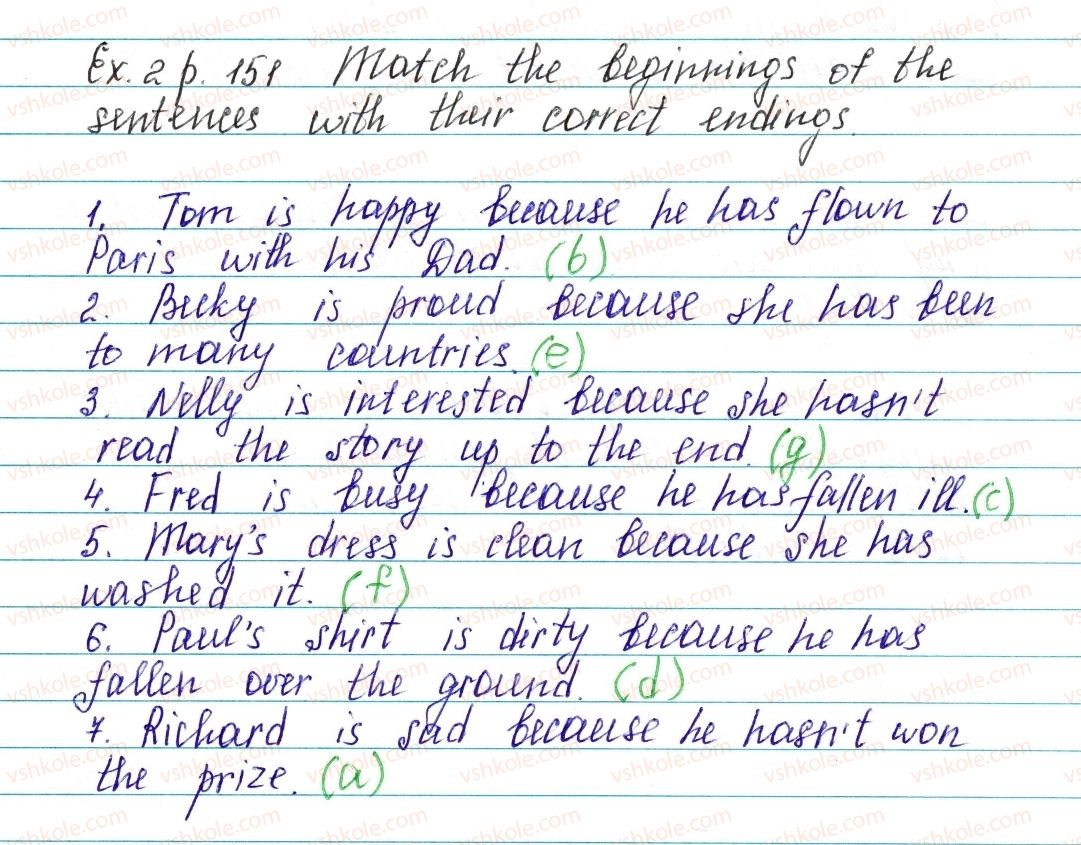 Ex. 2 p. 151 Match the beginnings of the
sentences with their correct endings.
1. Tom is happy because he has flown to
Paris with his Dad. (b)
2. Becky is proud because she has been
to many countries. (e)
3. Nelly is interested because she hasn't
read the story up to the end. (g)
4. Fred is busy because he has fallen ill. (c)
5. Mary's dress is clean because she has
washed it. (f)
6. Paul's shirt is dirty because he has
fallen over the ground. (d)
7. Richard is sad because he hasn't won
the prize. (a)
vshkole.com